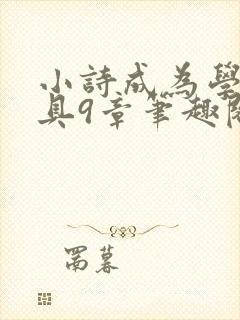 小詩成為學
具9章筆趣
罱暮